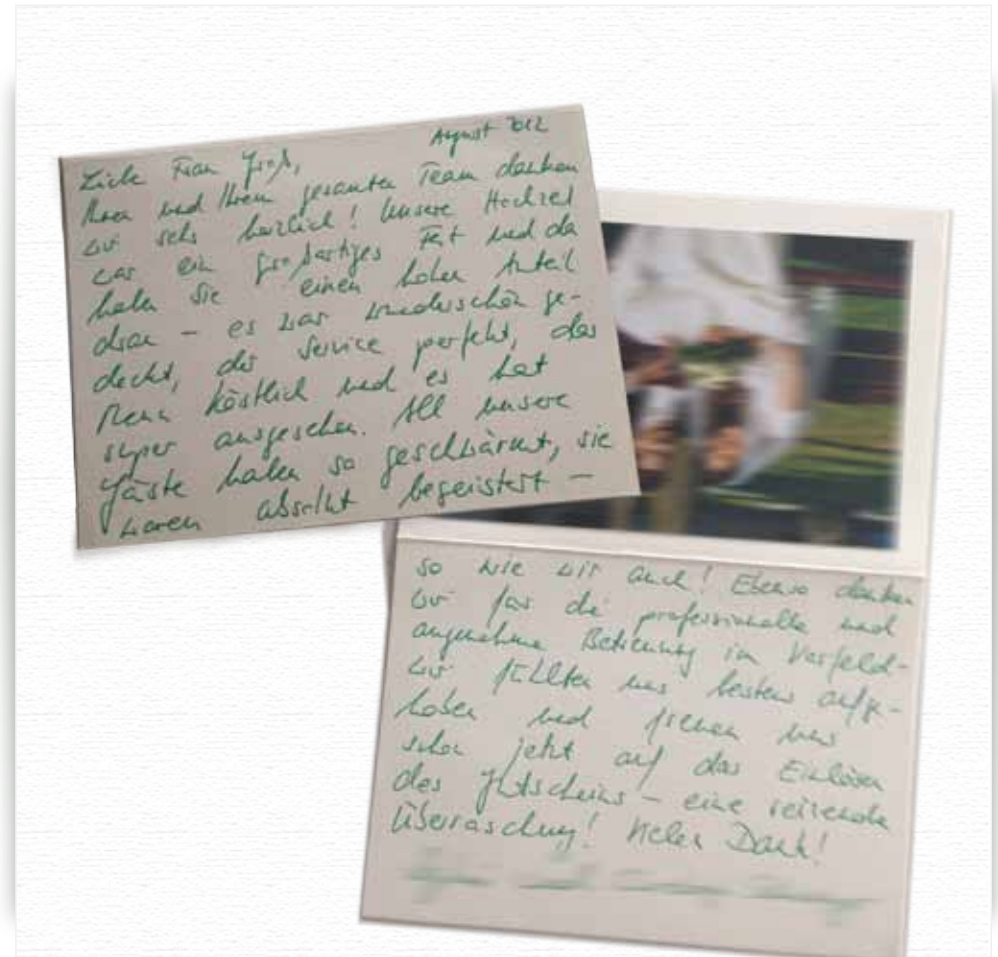 August 2012
Liebe Frau Groß,
Ihnen und Ihrem gesamten Team danken
wir sehr herzlich! Unsere Hochzeit
war ein großartiges Fest und da
haben Sie einen hohen Anteil
dran – es war wunderschön ge-
deckt, der Service perfekt, das
Menü köstlich und es hat
super ausgesehen. All unsere
Gäste haben so geschwärmt, sie
waren absolut begeistert –
so wie wir auch! Ebenso danken
wir für die professionelle und
angenehme Betreuung im Vorfeld –
wir fühlten uns bestens aufge-
hoben und freuen uns
schon jetzt auf das Einlösen
des Gutscheins – eine reizende
Überraschung! Vielen Dank!